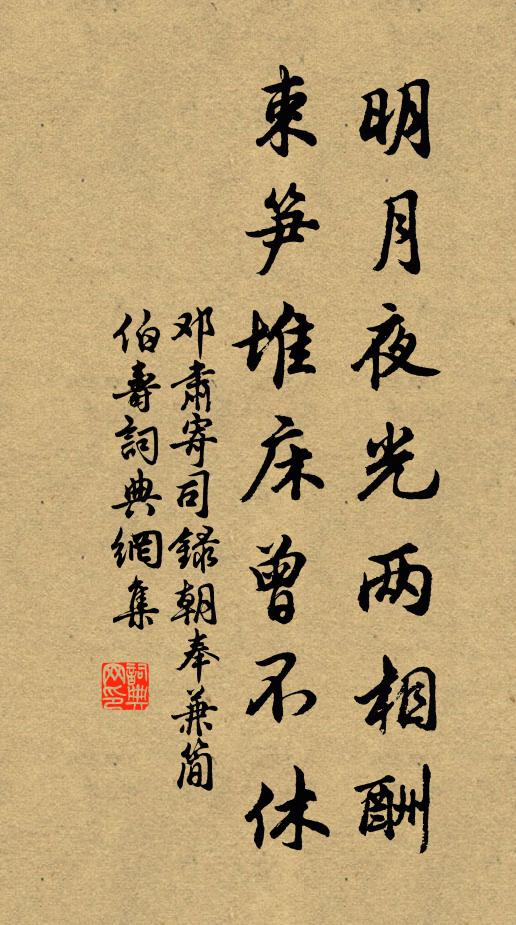 明月夜光两相酬
束笋堆床曾不休
邓肃寄司録朝奉兼简
伯壽詞典網集
詞典网印